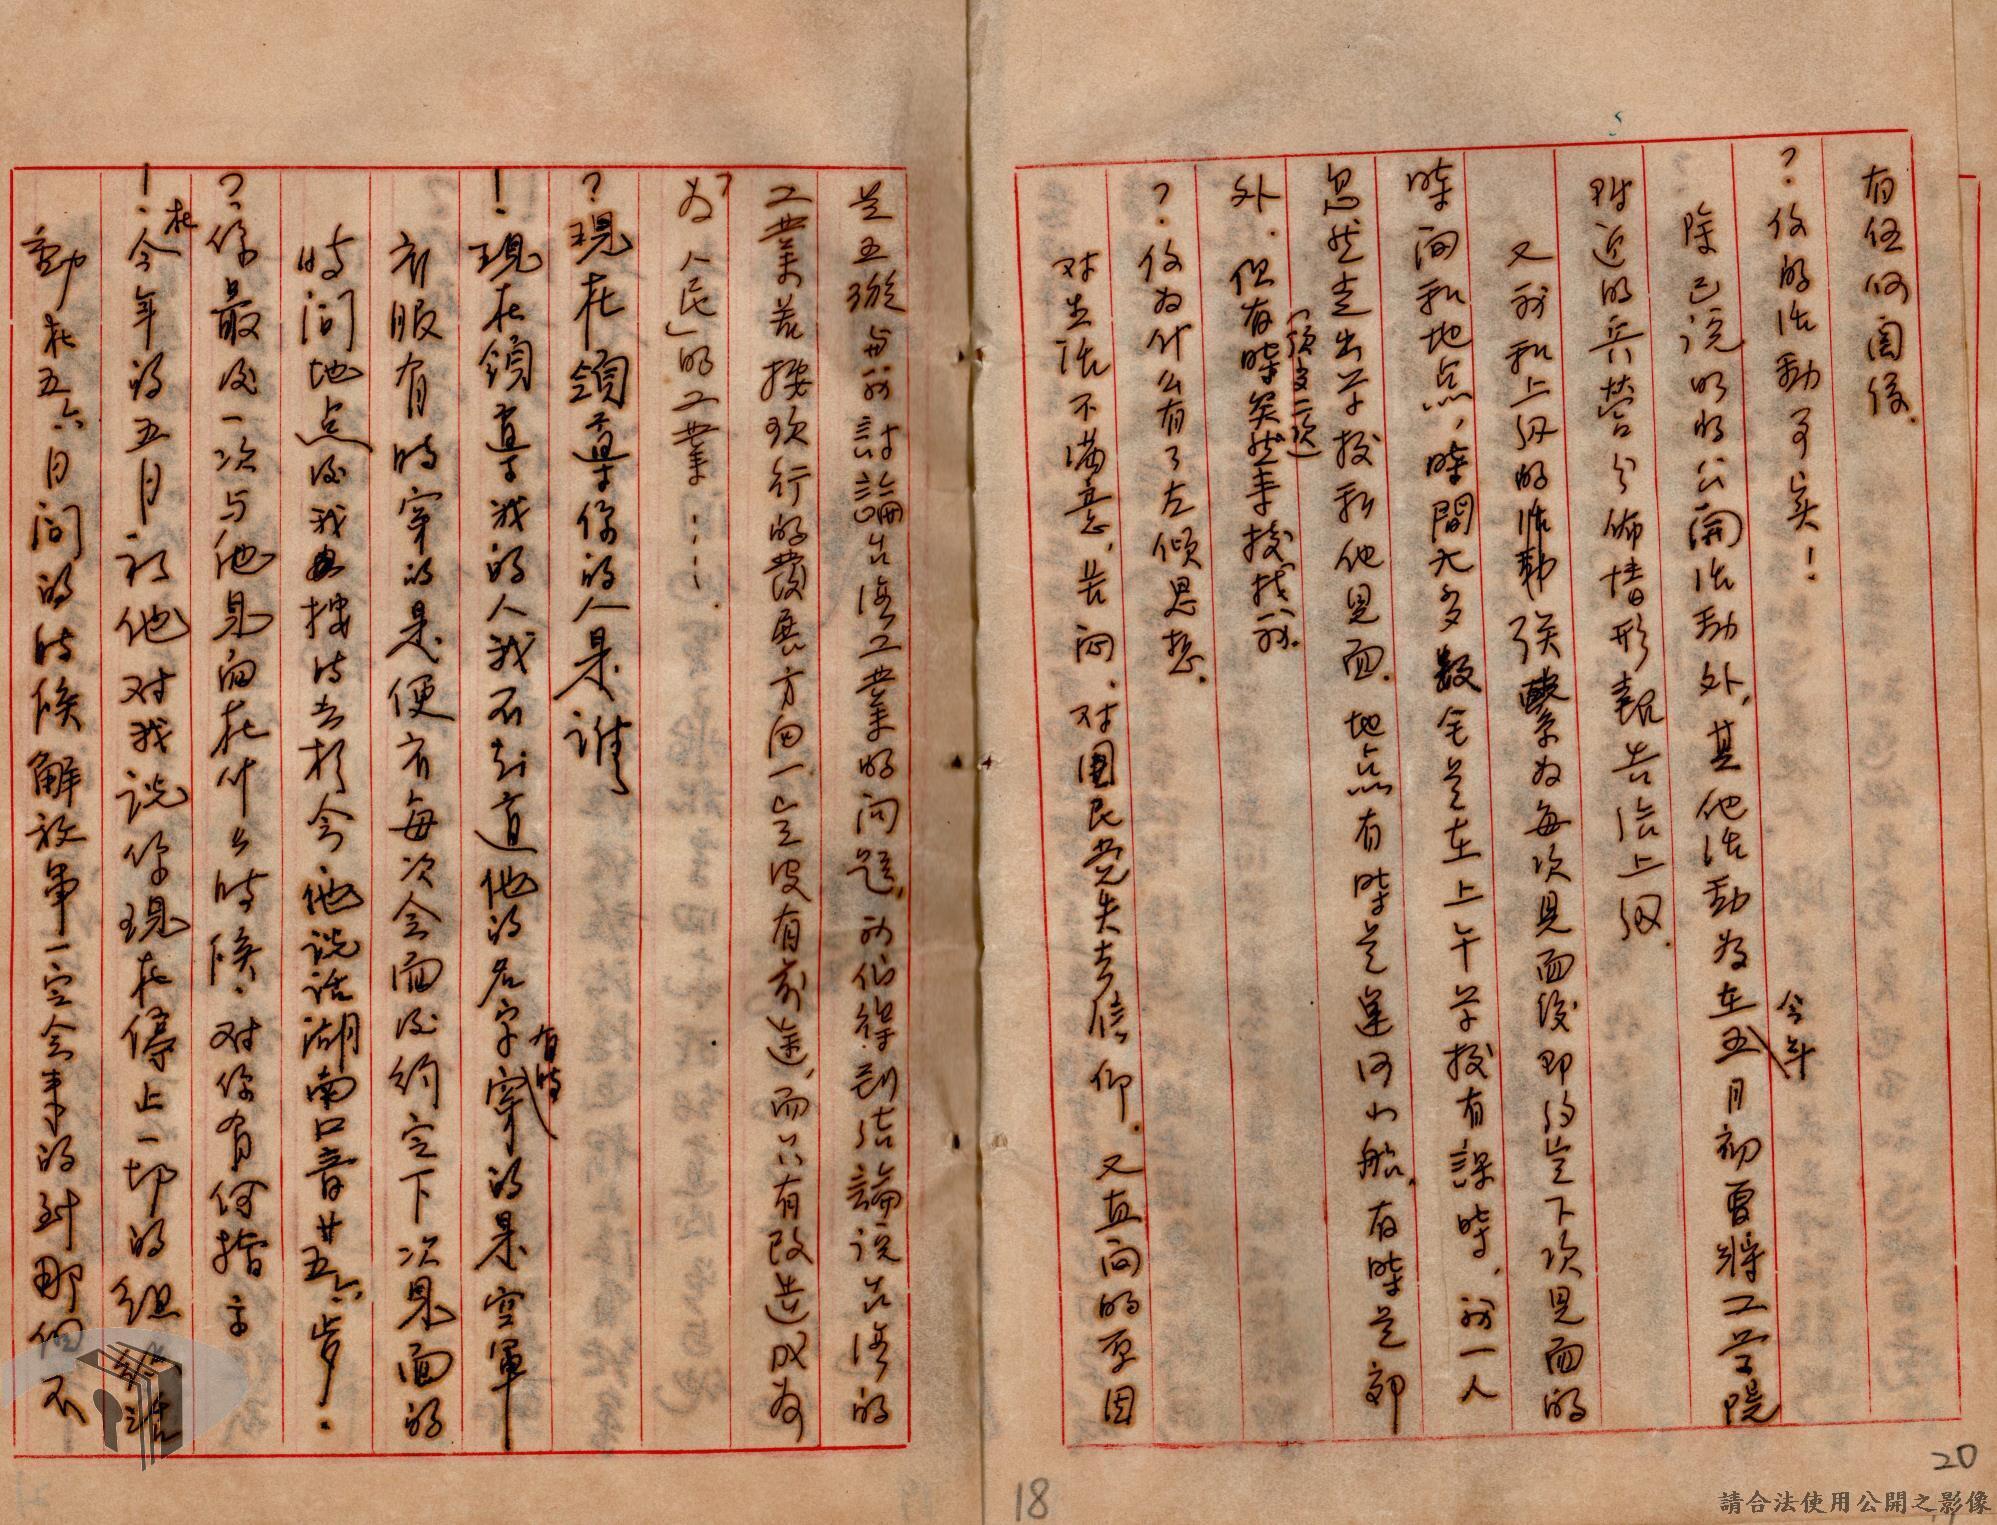 有任何関係.
?. 你的活動事実!
除已说的公開活動外, 其他活動为在今年五月初曾將工学院
附近的兵营分佈情形報告给上级.
又我和上级的活動联繫为每次見面後即约定下次見面的
時间和地点, 時間大多数全是在上午学校有課時, 我一人
忽然走出学校和他見面. 地点有時是運河小船, 有時是郊
外. 但有時突然来校找我.
?. 你为什么有了左倾思想.
对生活不满意, 苦闷, 对国民党失去信仰. 又直向的原因
是 与我討論台湾工業的问题, 我们得到结論说台湾的
工業若按现行的發展方向一定沒有前途, 而只有改造成为
为「人民」的工業……
? 現在領導你的人是谁
! 現在領導我的人我不知道他的名字有時穿的是空軍
衣服有時穿的是便衣每次会面後约定下次見面的
時间地点後我去按時去於会. 他说话湖南口音廿五六岁.
?. 你最後一次与他見面在什么時候. 对你有何指示
!. 在今年的五月初他对我说你現在停止一切的组
動在五六日间的時候解放軍一定会来的到那個不
20
18
請合法使用公開之影像